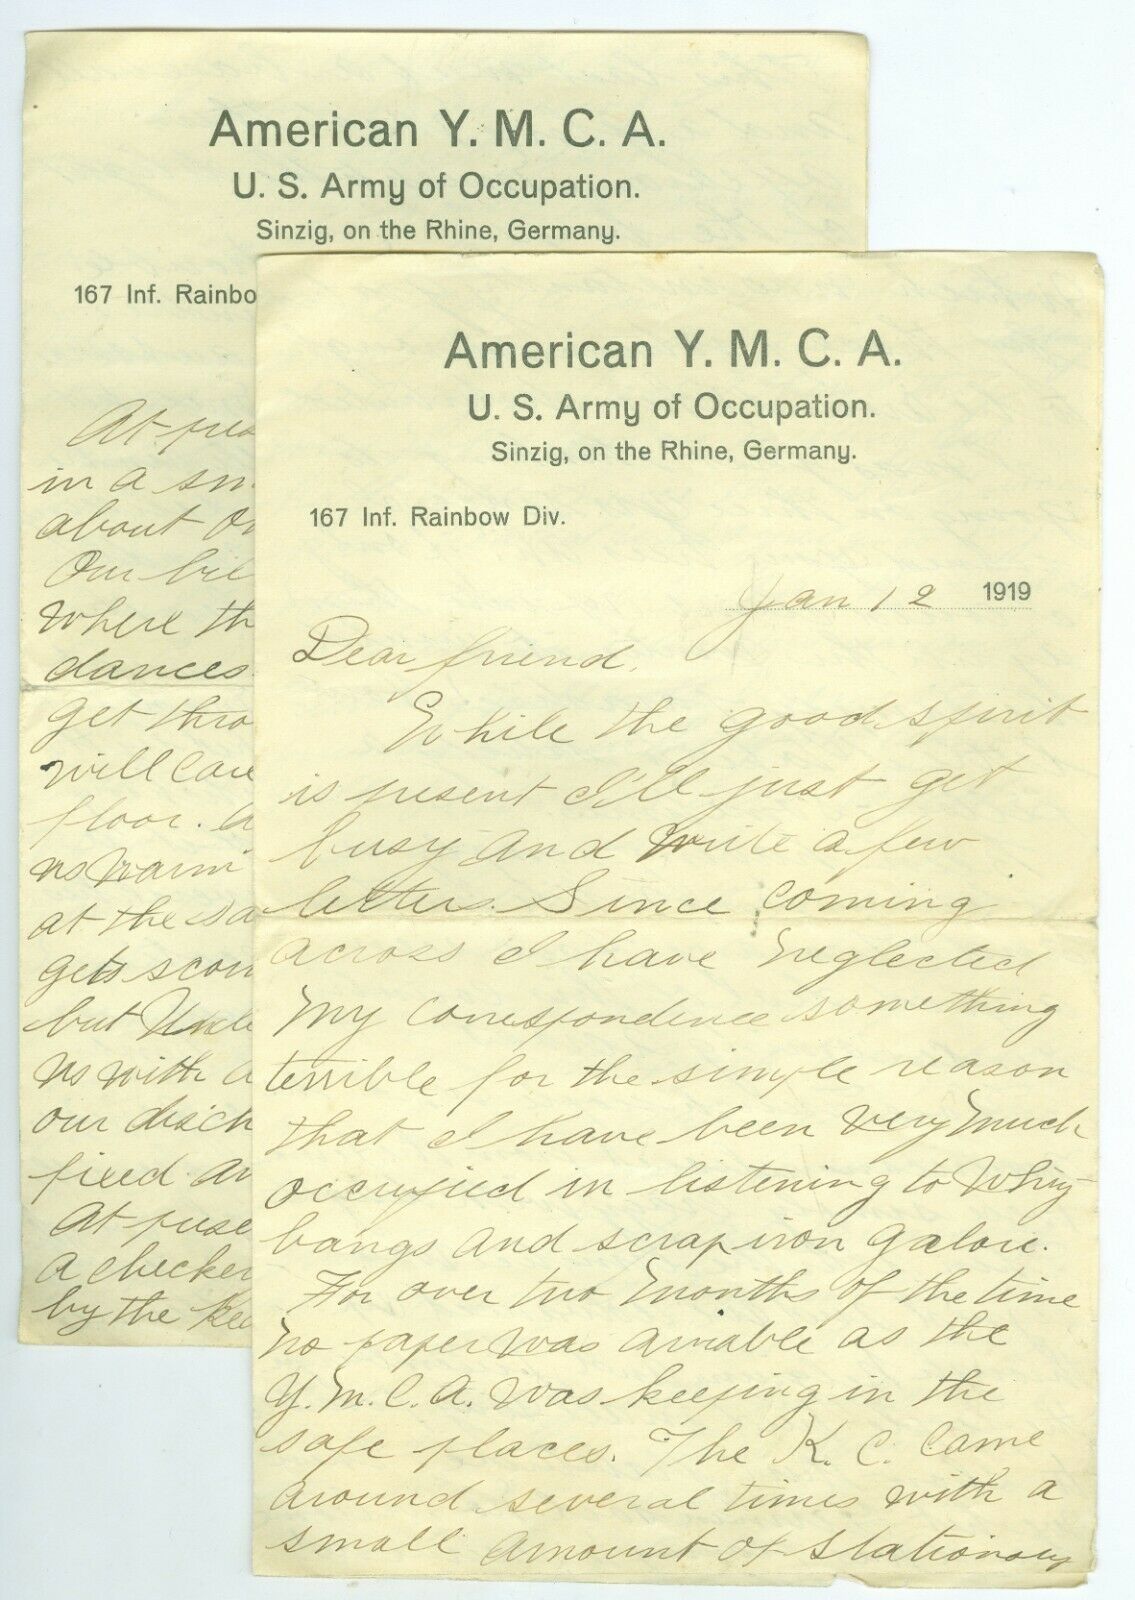 American Y. M. C. A.
U. S. Army of Occupation.
Sinzig, on the Rhine, Germany.
167 Inf. Rainbo
At pres
in a sm
about on
Our bil
where th
dances
get thro
will care
floor. a
us warm
at the sa
gets scou
but Uncle
us with a
our disch
fixed an
At prese
a checker
by the
American Y. M. C. A.
U. S. Army of Occupation.
Sinzig, on the Rhine, Germany.
167 Inf. Rainbow Div.
Jan 12 1919
Dear friend.
While the good spirit
is present I'll just get
busy and write a few
letters. Since coming
across I have neglected
my correspondence something
terrible for the simple reason
that I have been very much
occupied in listening to Whiz
bangs and scrap iron galore.
For over two months of the time
no paper was aviable as the
Y. M. C. A. was keeping in the
safe places. The K. C. came
around several times with a
small amount of stationary